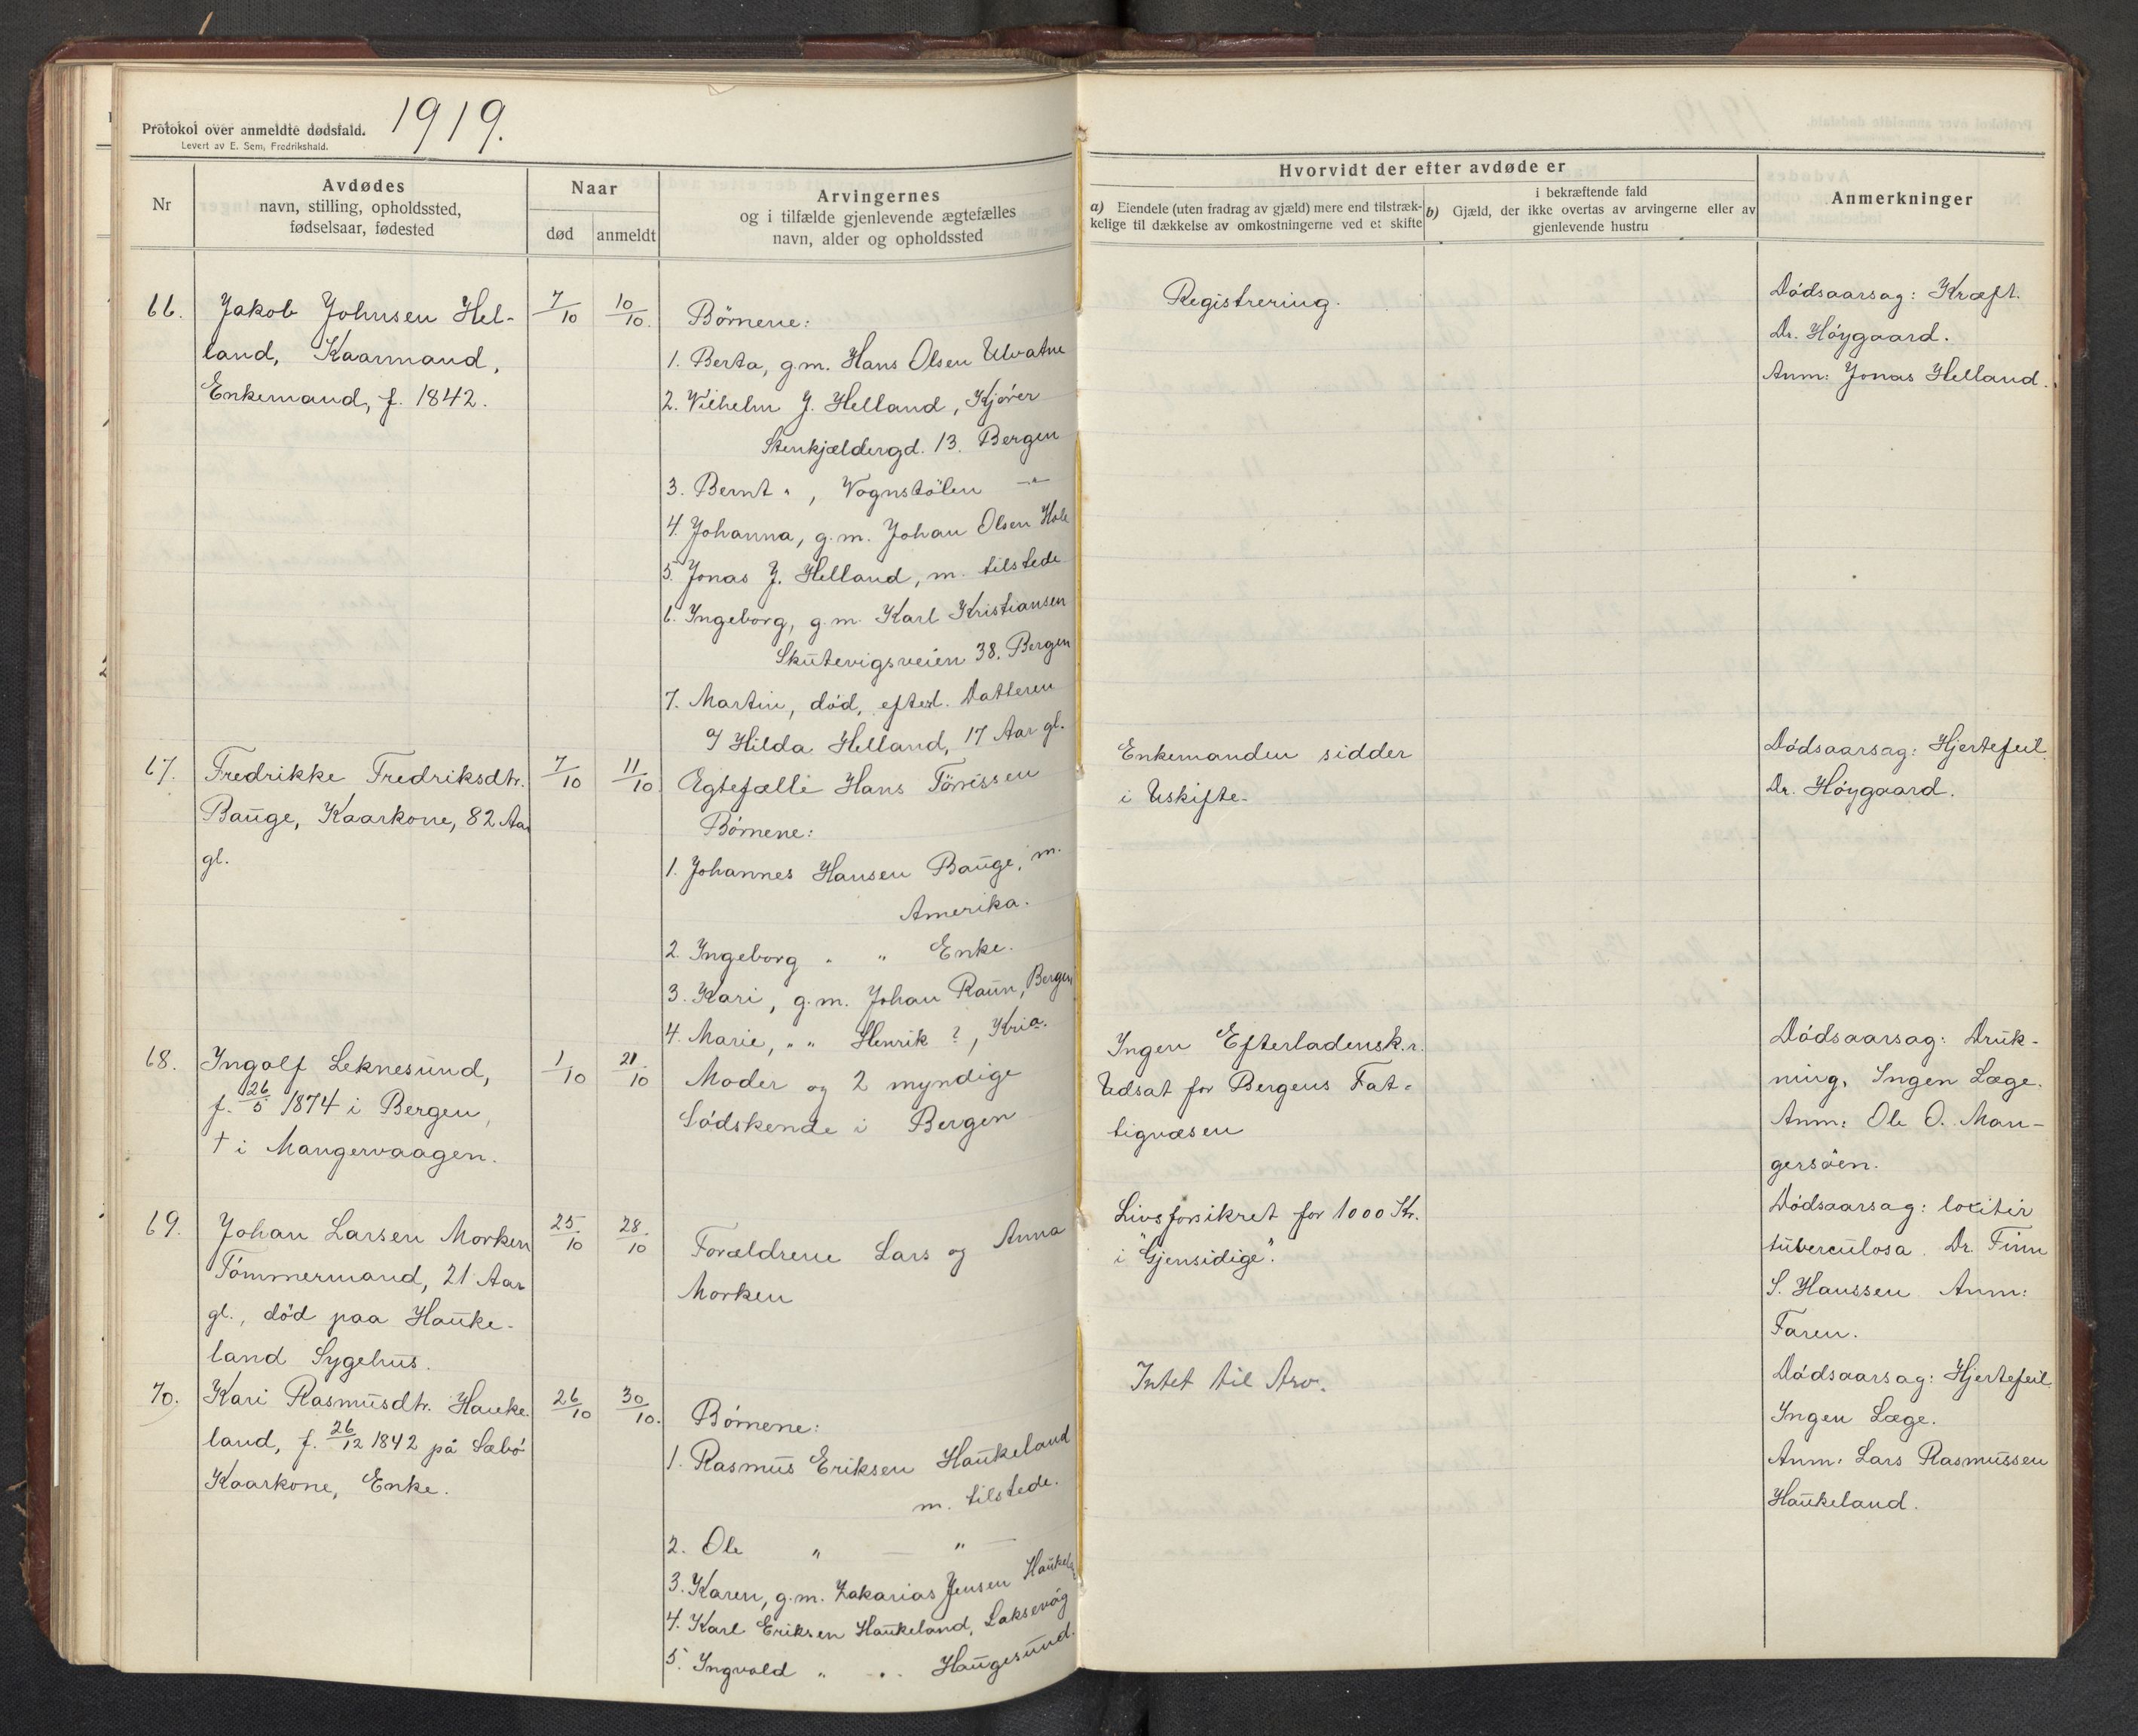 Protokol over anmeldte dødsfald. 1919.
Levert av E. Sem, Fredrikshald.
Nr
Avdødes
navn, stilling, opholdssted,
fødselsaar, fødested
Naar
død
anmeldt
Arvingernes
og i tilfælde gjenlevende ægtefælles
navn, alder og opholdssted
Hvorvidt der efter avdøde er
a) Eiendele (uten fradrag av gjæld) mere end tilstræk-
kelige til dækkelse av omkostningerne ved et skifte
i bekræftende fald
b) Gjæld, der ikke overtas av arvingerne eller av
gjenlevende hustru
Anmerkninger
66.
Jakob Johnsen Hel-
land, Kaarmand,
Enkemand, f. 1842.
7/10
10/10.
Börnene:
1. Berta, g.m. Hans Olsen Ulvatne
2. Vilhelm J. Helland, Kjörer
Stenkjældergd. 13. Bergen
3. Bernt " , Vognstölen —"—
4. Johanna, g.m. Johan Olsen Hole
5. Jonas J. Helland, m. tilstede
6. Ingeborg, g.m. Karl Kristiansen
Skutevigsveien 38. Bergen
7. Martin, död, efterl. Datteren
a/ Hilda Helland, 17 Aar gl.
Registrering.
Dödsaarsag: Kræft.
Dr. Höygaard.
Anm: Jonas Helland.
67.
Fredrikke Fredriksdtr.
Bauge, Kaarkone, 82 Aar
gl.
7/10
11/10
Egtefælle Hans Törrissen
Börnene:
1. Johannes Hansen Bauge, m.
Amerika.
2. Ingeborg " " Enke.
3. Kari, g.m. Johan Raun, Bergen
4. Marie, " " Henrik ?, Kria.
Enkemanden sidder
i Uskifte.
Dödsaarsag: Hjertefeil.
Dr. Höygaard.
68.
Ingolf Leknesund,
f. 26/5 1874 i Bergen,
† i Mangervaagen.
1/10
21/10
Moder og 2 myndige
Södskende i Bergen
Ingen Efterladensk.r.
Udsat for Bergens Fat-
tigvæsen
Dödsaarsag: Druk-
ning, Ingen Læge.
Anm: Ole O. Man-
gersöen.
69.
Johan Larsen Morken
Tömmermand, 21 Aar
gl., död paa Hauke-
land Sygehus.
25/10
28/10
Forældrene Lars og Anna
Morken
Livsforsikret for 1000 Kr.
i "Gjensidige".
Dödsaarsag:
tuberculosa. Dr. Finn
S. Hanssen Anm:
Faren.
70.
Kari Rasmusdtr. Hauke-
land, f. 26/12 1842 på Sæbö
Kaarkone, Enke.
26/10
30/10.
Börnene:
1. Rasmus Eriksen Haukeland
m. tilstede.
2. Ole " — " —
3. Karen, g.m. Zakarias Jensen
4. Karl Eriksen Haukeland, Laksevåg
5. Ingvald " " Haugesund.
Intet til Arv.
Dödsaarsag: Hjertefeil.
Ingen Læge.
Anm: Lars Rasmussen
Haukeland.